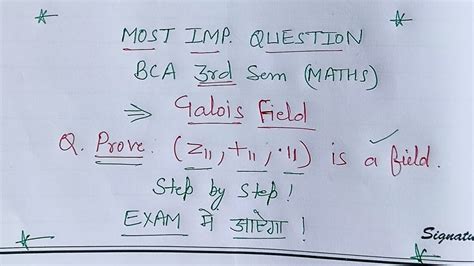 MOST IMP. QUESTION
BCA 3rd Sem (MATHS)
⇒ Galois Field
Q. Prove: (Z₁₁, +₁₁, ·₁₁) is a field.
Step by Step!
EXAM में आएगा!
Signatu